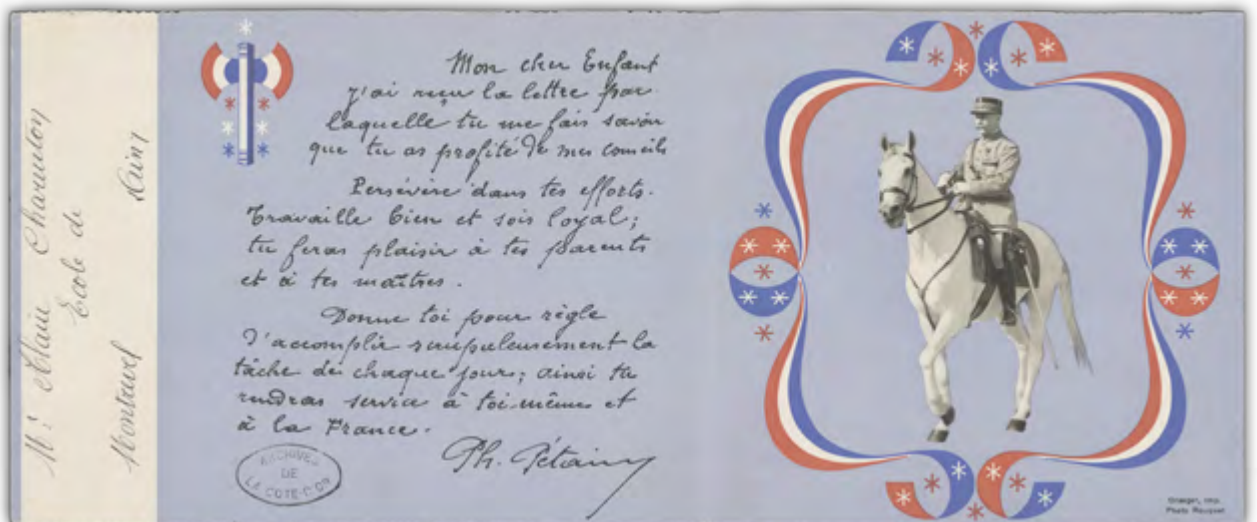 Mr Alain Charenton
Ecole de
Montrevel Ain
Mon cher Enfant
j'ai reçu la lettre par
laquelle tu me fais savoir
que tu as profité de mes conseils
Persévère dans tes efforts.
Travaille bien et sois loyal;
tu feras plaisir à tes parents
et à tes maîtres.
Donne toi pour règle
d'accomplir scrupuleusement la
tâche de chaque jour; ainsi tu
rendras service à toi-même et
à la France.
Ph. Pétain
ARCHIVES
DE
LA COTE-D'OR
Draeger, imp.
Photo Rouquet